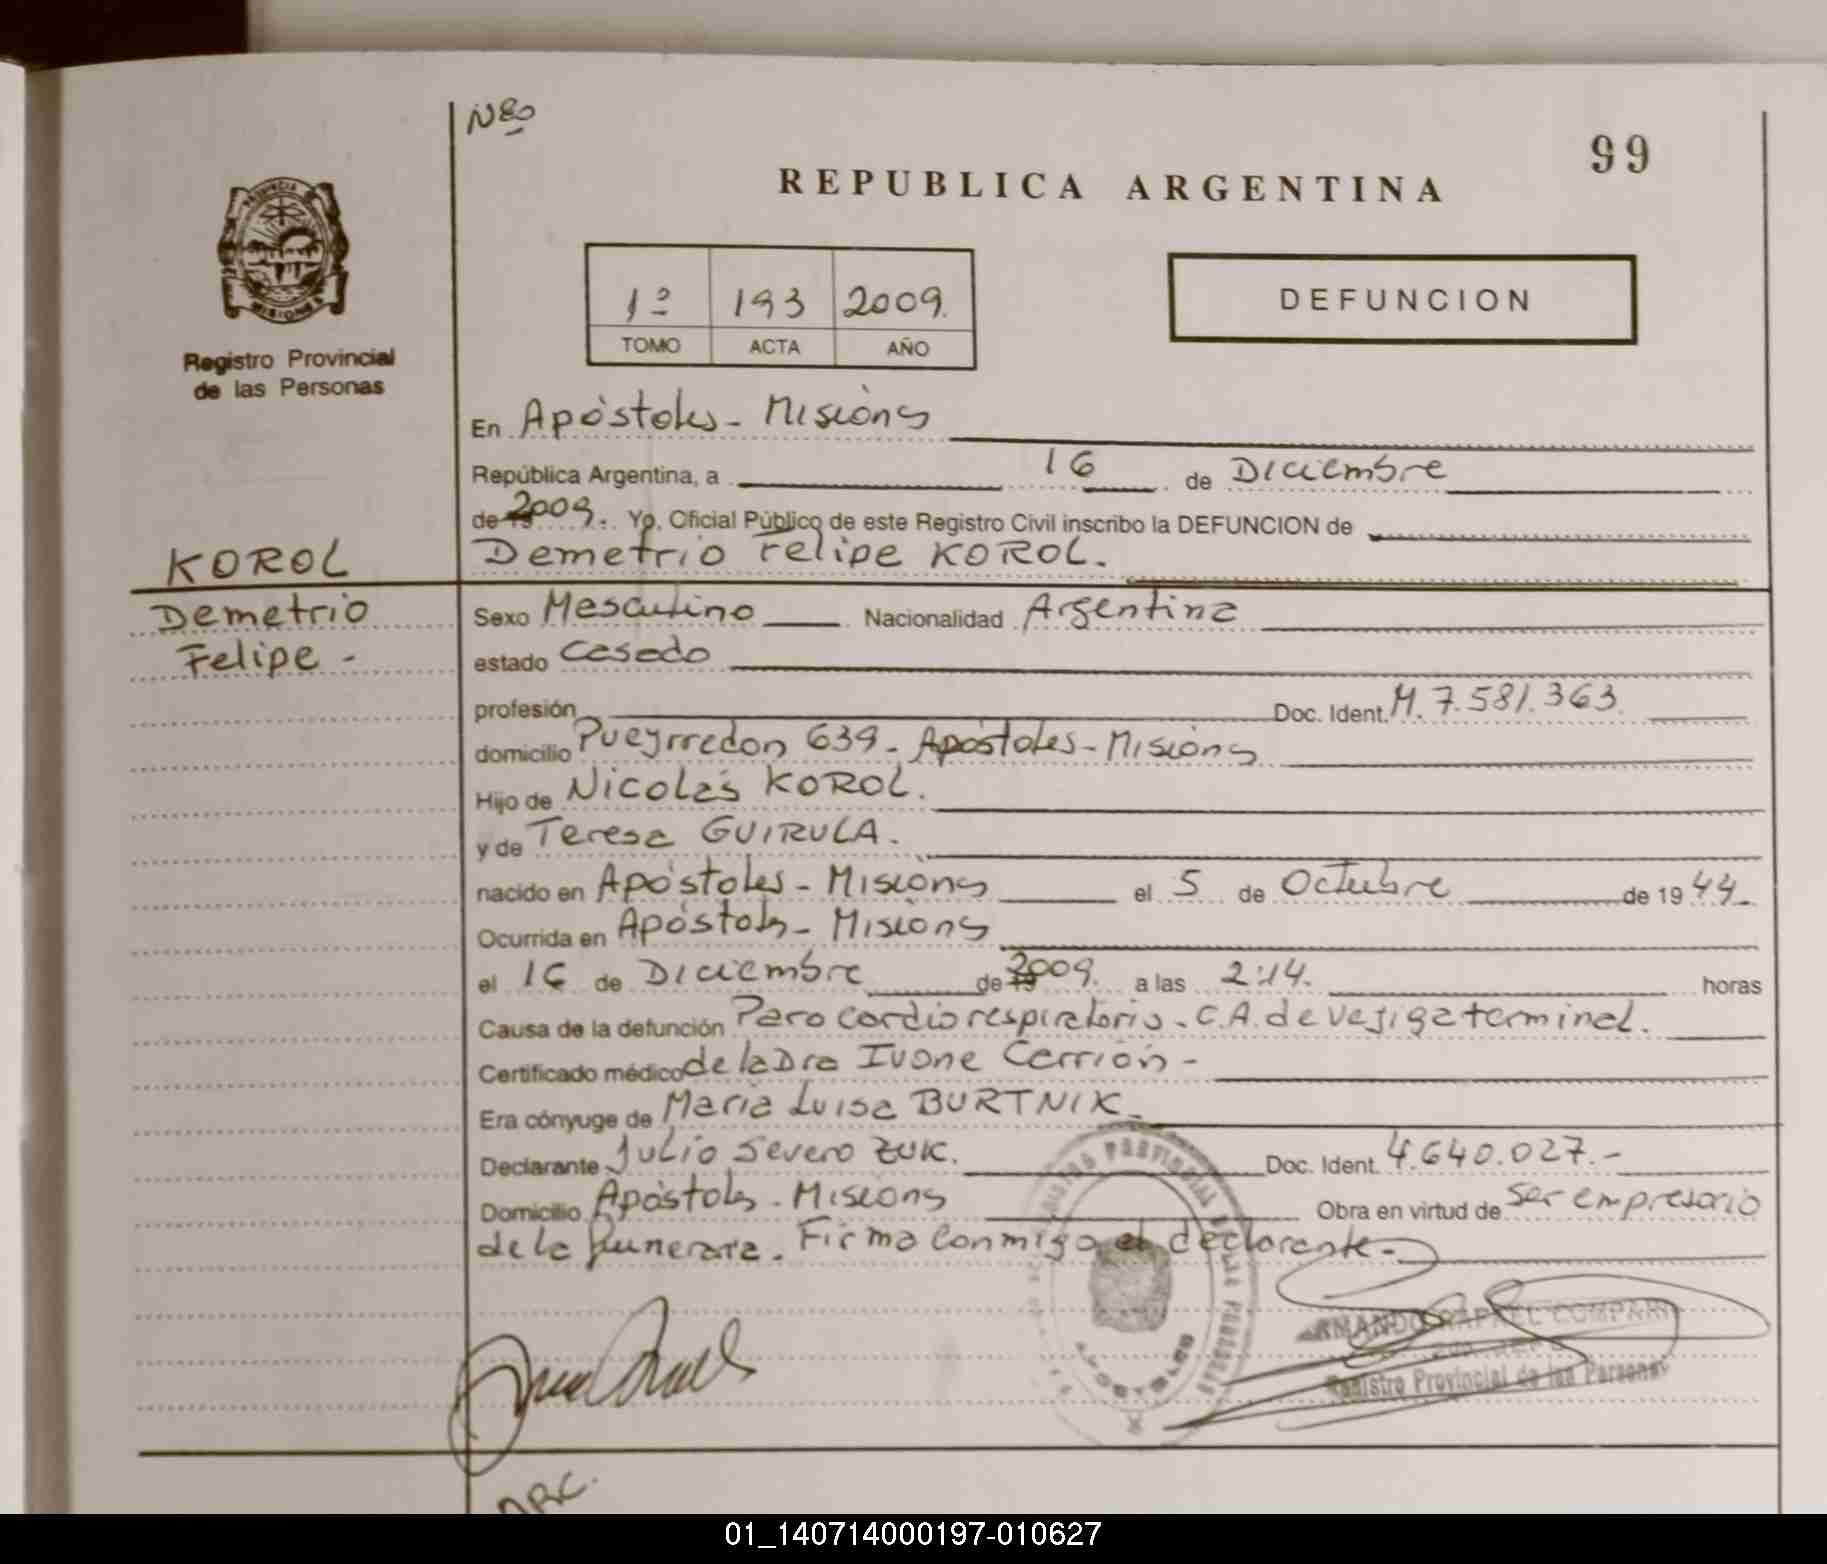 Nēo
99
REPUBLICA ARGENTINA
PROVINCIA
MISIONES
Registro Provincial
de las Personas
1º 193 2009.
TOMO ACTA AÑO
DEFUNCION
En Apóstoles - Misiones
República Argentina, a 16 de Diciembre
de 2009. Yo, Oficial Público de este Registro Civil inscribo la DEFUNCION de
KOROL
Demetrio Felipe KOROL.
Demetrio
Felipe -
Sexo Masculino Nacionalidad Argentina
estado Casado
profesión Doc. Ident. M. 7.581.363
domicilio Pueyrredon 639 - Apóstoles - Misiones
Hijo de Nicolás KOROL.
y de Teresa GUIRULA.
nacido en Apóstoles - Misiones el 5 de Octubre de 1944.
Ocurrida en Apóstoles - Misiones
el 16 de Diciembre de 2009. a las 2:14. horas
Causa de la defunción Paro cardiorespiratorio. C.A. de vejiga terminal.
Certificado médico de la Dra Ivone Carrión -
Era cónyuge de María Luisa BURTNIK -
Declarante Julio Severo ZUK. Doc. Ident. 4.640.027. -
Domicilio Apóstoles - Misiones Obra en virtud de ser empresario
de la funeraria. Firma conmigo el declarante. -
REGISTRO PROVINCIAL DE LAS PERSONAS
APOSTOLES
ARMANDO RAFAEL COMPARI
Registro Provincial de las Personas
01_140714000197-010627